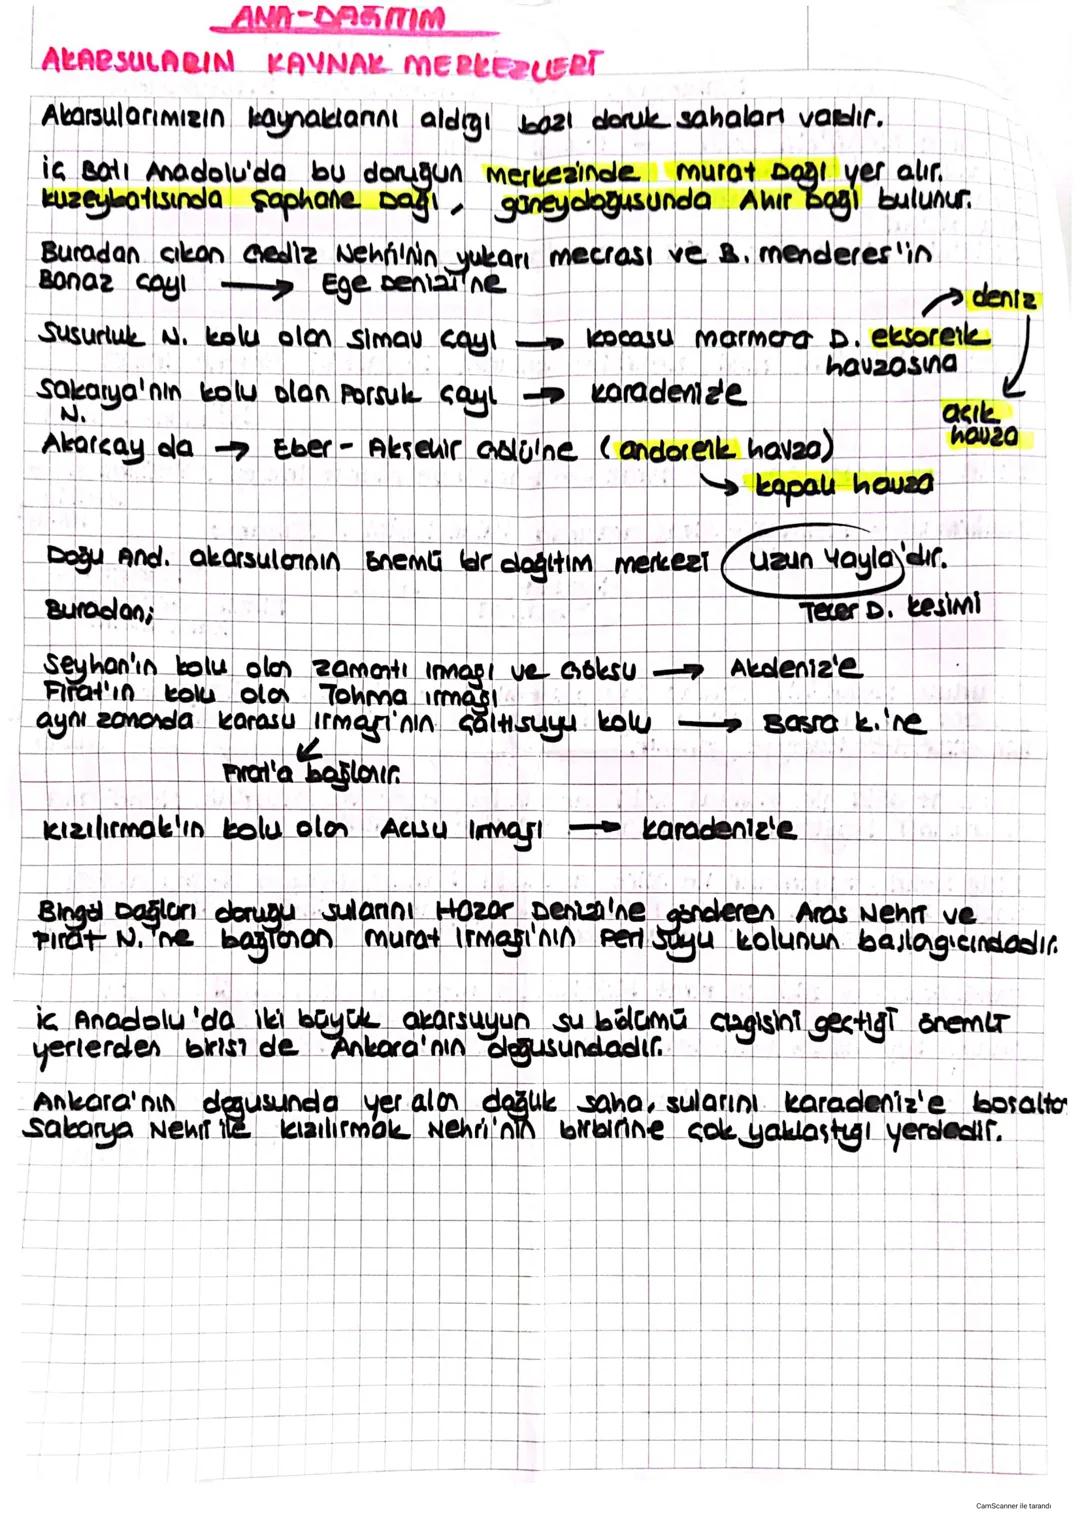 ANA-DAĞITIM
AKARSULARIN KAYNAK MERKEZLERİ
Akarsularımızın kaynaklarını aldığı bazı doruk sahaları vardır.
iç Batı Anadolu'da bu doruğun merkezinde murat Dağı yer alır.
kuzeybatısında Şaphane Dağı, güneydoğusunda Ahır Dağı bulunur.
Buradan çıkan Gediz Nehri'nin yukarı mecrası ve B. menderes'in
Banaz çayı → Ege Denizi'ne
deniz
Susurluk N. kolu olan Simav çayı → kocasu marmara D. eksoreik
havzasına
Sakarya'nın kolu olan Porsuk çayı → karadeniz'e
N.
açık
havza
Akarçay da → Eber - Akşehir Gölü'ne (andoreik havza)
kapalı havza
Doğu And. akarsularının önemli bir dağıtım merkezi Uzun Yayla'dır.
Buradan;
Tecer D. kesimi
Seyhan'ın kolu olan zamantı ırmağı ve Göksu → Akdeniz'e
Fırat'ın kolu olan Tohma ırmağı
aynı zamanda karasu ırmağı'nın Çaltısuyu kolu → Basra k.'ne
Fırat'a bağlanır.
kızılırmak'ın kolu olan Acısu Irmağı → karadeniz'e
Bingöl Dağları doruğu sularını Hazar Denizi'ne gönderen Aras Nehri ve
Fırat N.'ne bağlanan murat ırmağı'nın Peri Suyu kolunun başlagıcındadır.
iç Anadolu'da iki büyük akarsuyun su bölümü çizgisini geçtiği önemli
yerlerden birisi de Ankara'nın doğusundadır.
Ankara'nın doğusunda yer alan dağlık saha, sularını karadeniz'e boşalta
Sakarya Nehri ile kızılırmak Nehri'nin birbirine çok yaklaştığı yerdedir.
CamScanner ile tarandı